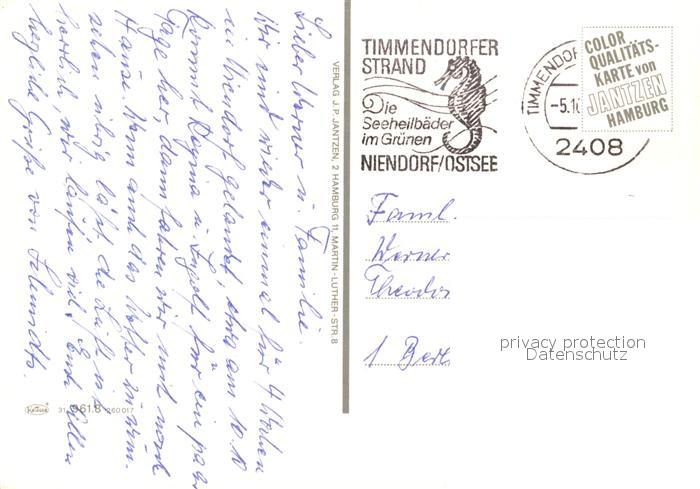 Lieber Werner u. Familie.
Wir sind wieder einmal für 4 Wochen
in Niendorf gelandet, etwa am 10.10
kommt Regina u. für ein paar
Tage her dann fahren wir mit nach
Hause. Wenn auch das Wetter zu
übrig läßt die Luft ist
herrlich, wir laufen viel. Euch allen
herzliche Grüße von Schmidts.
VERLAG J. P. JANTZEN, 2 HAMBURG 11, MARTIN-LUTHER-STR. 8
Krüger
31. 961.8 260017
TIMMENDORFER
STRAND
Die
Seeheilbäder
im Grünen
NIENDORF/OSTSEE
TIMMENDOR
-5.10
2408
COLOR
QUALITÄTS-
KARTE von
JANTZEN
HAMBURG
Faml.
Werner
Theodor
1 Berl.
privacy protection
Datenschutz